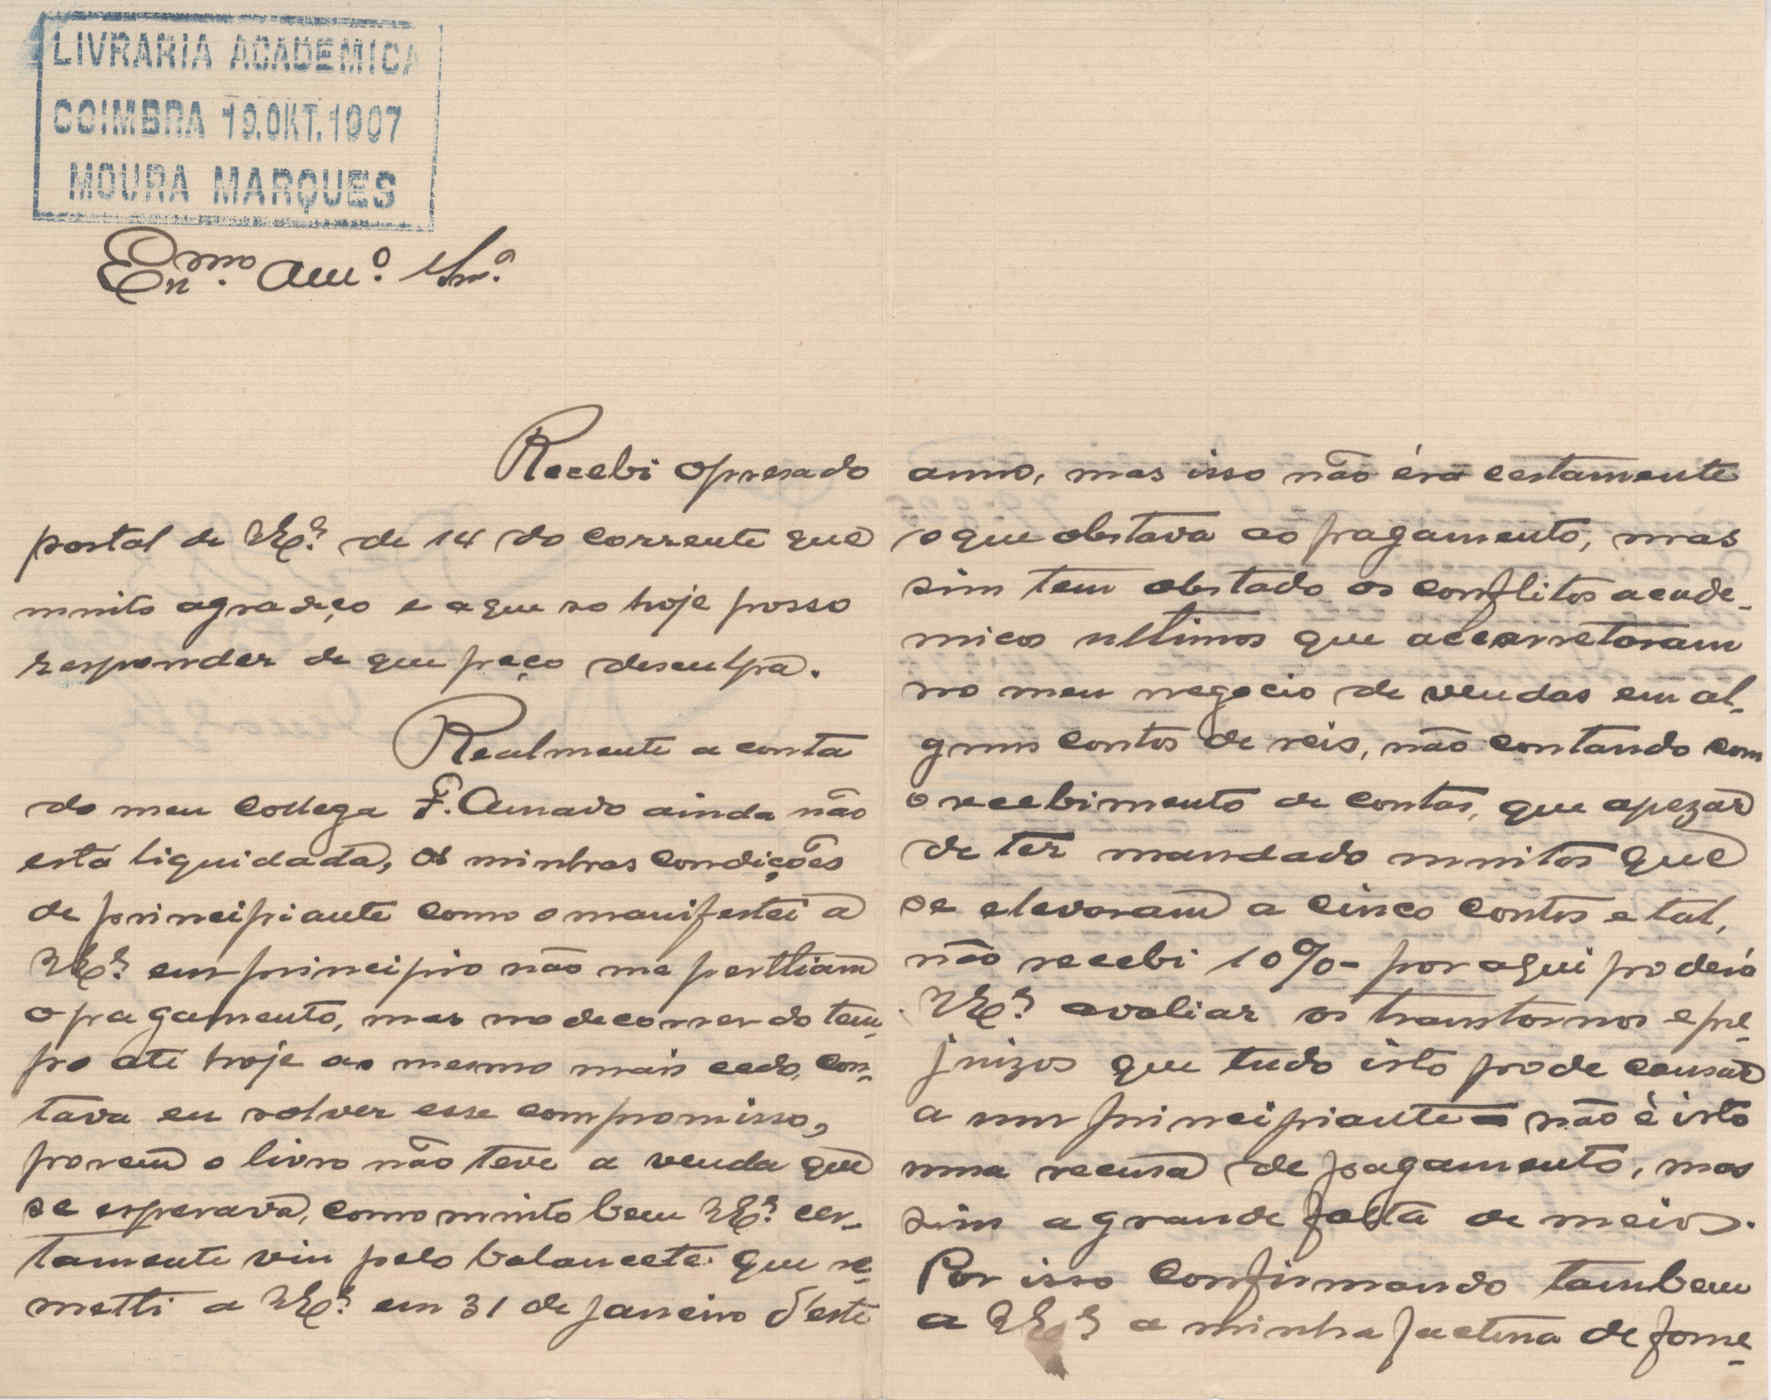 LIVRARIA ACADEMICA
COIMBRA 19.OKT.1907
MOURA MARQUES
Exmo. Amº. Snr.
Recebi o presado
postal de VExª. de 14 do corrente que
muito agradeço e a que so hoje posso
responder de que peço desculpa.
Realmente a conta
do meu collega F. Amado ainda não
está liquidada, as minhas condições
de principiante como o manifestei a
VExª. em principio não me
o pagamento, mas no decorrer do tem-
po até hoje ao mesmo mais cedo, con-
tava eu solver esse compromisso,
porem o livro não teve a venda que
se esperava, como muito bem VExª. cer-
tamente viu pelo balancete que re-
metti a VExª. em 31 de janeiro d'este
anno, mas isso não éra certamente
o que obstava ao pagamento, mas
sim tem obstado os conflitos acade-
micos ultimos que accarretaram
no meu negocio de vendas em al-
guns contos de reis, não contando com
o recebimento de contas, que apezar
de ter mandado muitas que
se elevaram a cinco contos e tal,
não recebi 10% - por aqui poderá
VExª. avaliar os transtornos e pre-
juizos que tudo isto pode causar
a um principiante - não é isto
uma recusa de pagamento, mas
sim a grande falta de meios.
Por isso confirmando tambem
a VExª a minha factura de forne-